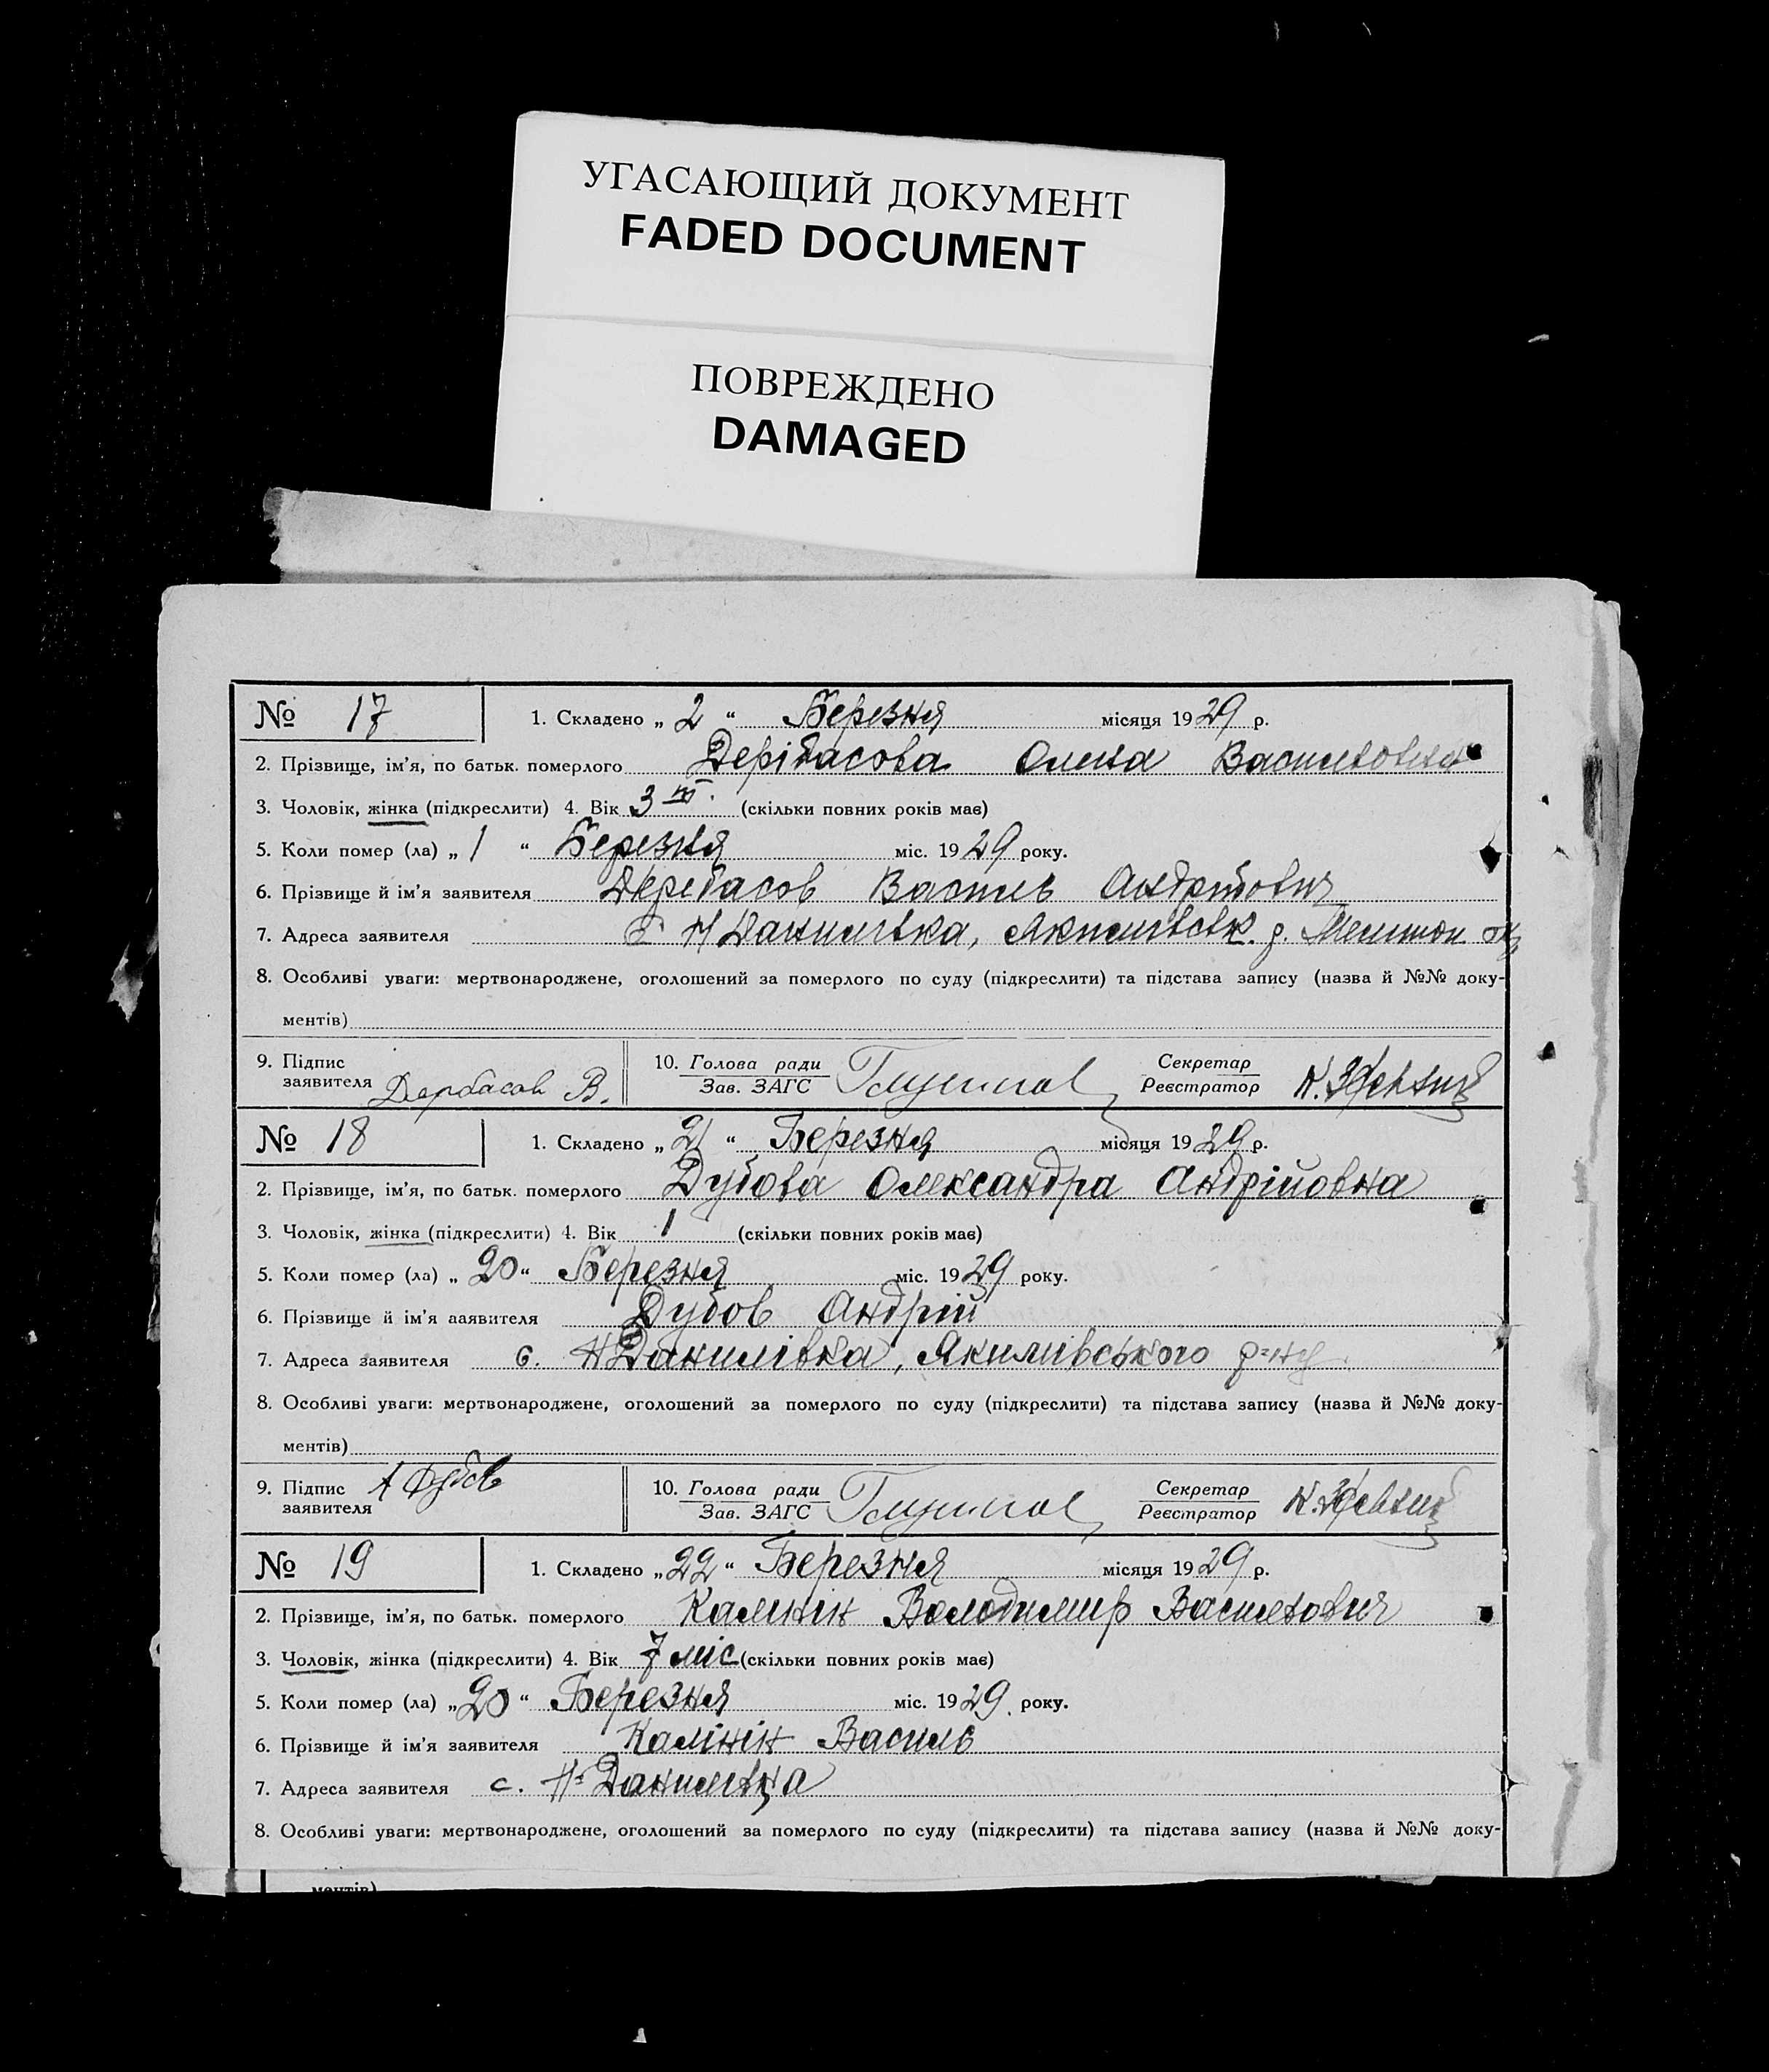 УГАСАЮЩИЙ ДОКУМЕНТ
FADED DOCUMENT
ПОВРЕЖДЕНО
DAMAGED
№ 17 1. Складено „ 2 “ Березня місяця 1929 р.
2. Прізвище, ім'я, по батьк. померлого Дерібасова Олена Васильовна
3. Чоловік, жінка (підкреслити) 4. Вік 3 (скільки повних років має)
5. Коли помер (ла) „ 1 “ Березня міс. 1929 року.
6. Прізвище й ім'я заявителя Деребасов Василь
7. Адреса заявителя Н Данилівка, Якимівськ. р. Мелітоп
8. Особливі уваги: мертвонароджене, оголошений за померлого по суду (підкреслити) та підстава запису (назва й №№ доку-
ментів)
9. Підпис заявителя Дербасов В. 10. Голова ради Зав. ЗАГС Секретар Реєстратор
№ 18 1. Складено „ 21 “ Березня місяця 1929 р.
2. Прізвище, ім'я, по батьк. померлого Дубова Олександра Андрійовна
3. Чоловік, жінка (підкреслити) 4. Вік 1 (скільки повних років має)
5. Коли помер (ла) „ 20 “ Березня міс. 1929 року.
6. Прізвище й ім'я ааявителя Дубов Андрій
7. Адреса заявителя с. Н Данилівка, Якимівського р-ну
8. Особливі уваги: мертвонароджене, оголошений за померлого по суду (підкреслити) та підстава запису (назва й №№ доку-
ментів)
9. Підпис заявителя А Дубов 10. Голова ради Зав. ЗАГС Секретар Реєстратор
№ 19 1. Складено „ 22 “ Березня місяця 1929 р.
2. Прізвище, ім'я, по батьк. померлого Калінін Володимир Васильович
3. Чоловік, жінка (підкреслити) 4. Вік 7 міс (скільки повних років має)
5. Коли помер (ла) „ 20 “ Березня міс. 1929 року.
6. Прізвище й ім'я заявителя Калінін Василь
7. Адреса заявителя с. Н-Данилівка
8. Особливі уваги: мертвонароджене, оголошений за померлого по суду (підкреслити) та підстава запису (назва й №№ доку-
ментів)